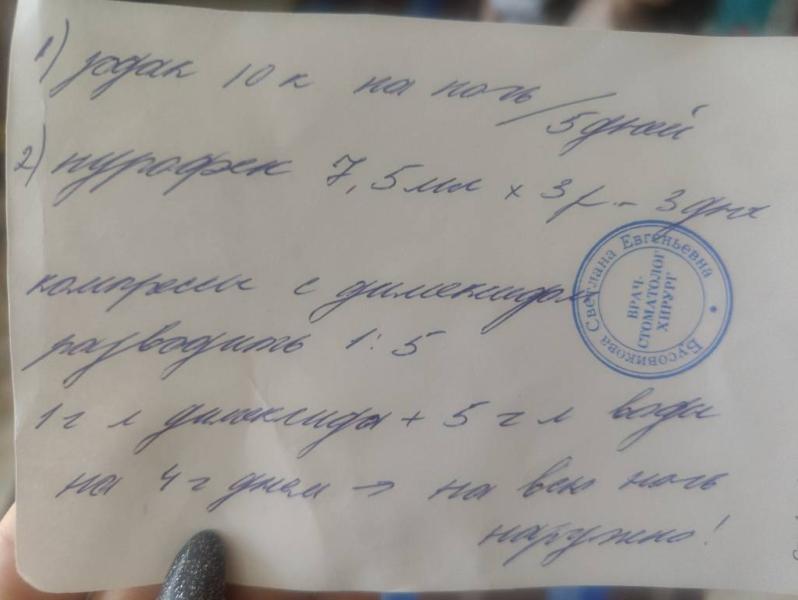 1) зодак 10 к на ночь / 5 дней
2) нурофен 7,5 мл х 3 р - 3 дня
компрессы с димексидом
разводить 1:5
1 ч л димексида + 5 ч л воды
на 4 ч днем → на всю ночь
наружно!
Бусовикова Светлана Евгеньевна
ВРАЧ-
СТОМАТОЛОГ
ХИРУРГ